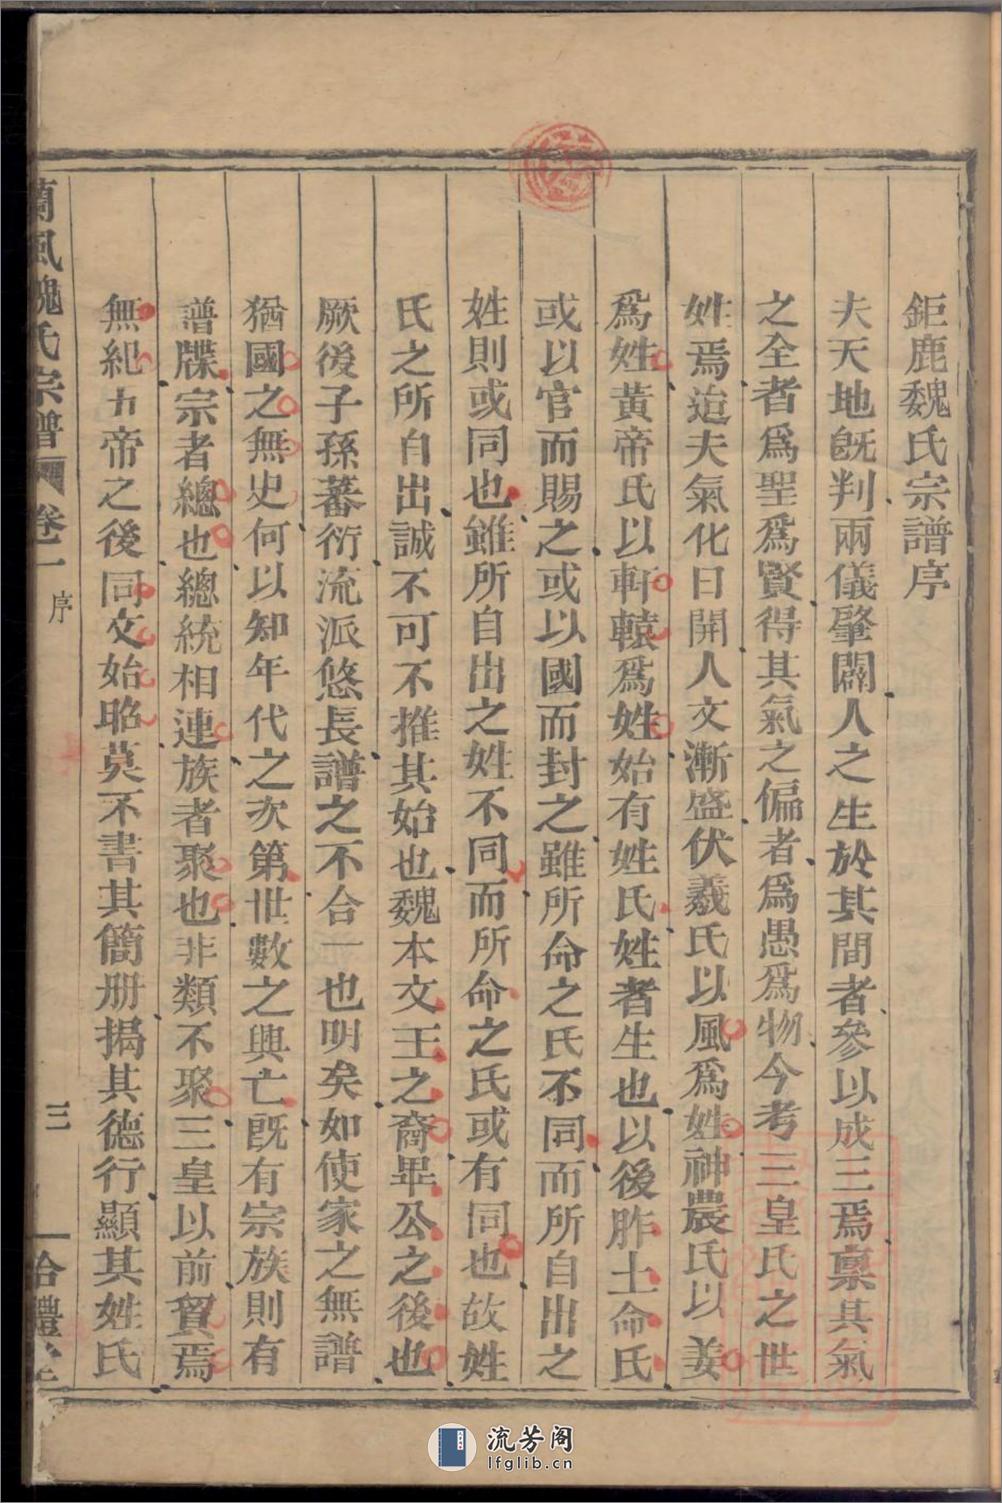 鉅鹿魏氏宗譜序
夫天地旣判兩儀肇闢人之生於其間者參以成三焉稟其氣
之全者爲聖爲賢得其氣之偏者爲愚爲物今考三皇氏之世
姓焉迨夫氣化日開人文漸盛伏羲氏以風爲姓神農氏以姜
爲姓黃帝氏以軒轅爲姓始有姓氏姓者生也以後胙土命氏
或以官而賜之或以國而封之雖所命之氏不同而所自出之
姓則或同也雖所自出之姓不同而所命之氏或有同也故姓
氏之所自出誠不可不推其始也魏本文王之裔畢公之後也
厥後子孫蕃衍流派悠長譜之不合一也明矣如使家之無譜
猶國之無史何以知年代之次第世數之興亡旣有宗族則有
譜牒宗者總也總統相連族者聚也非類不聚三皇以前貿焉
無紀五帝之後同文始昭莫不書其簡册揭其德行顯其姓氏
蘭風魏氏宗譜 卷一 序 三
流芳阁
lfglib.cn